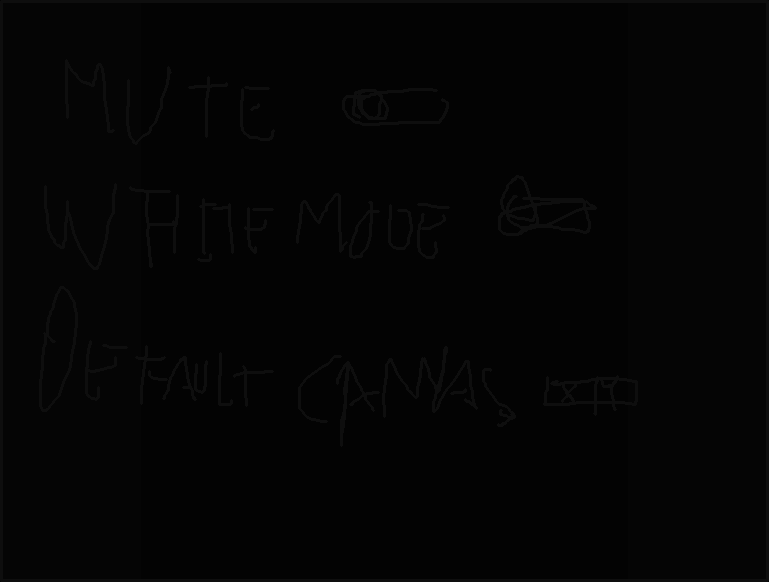 MUTE
WHITE MODE
DEFAULT CANVAS